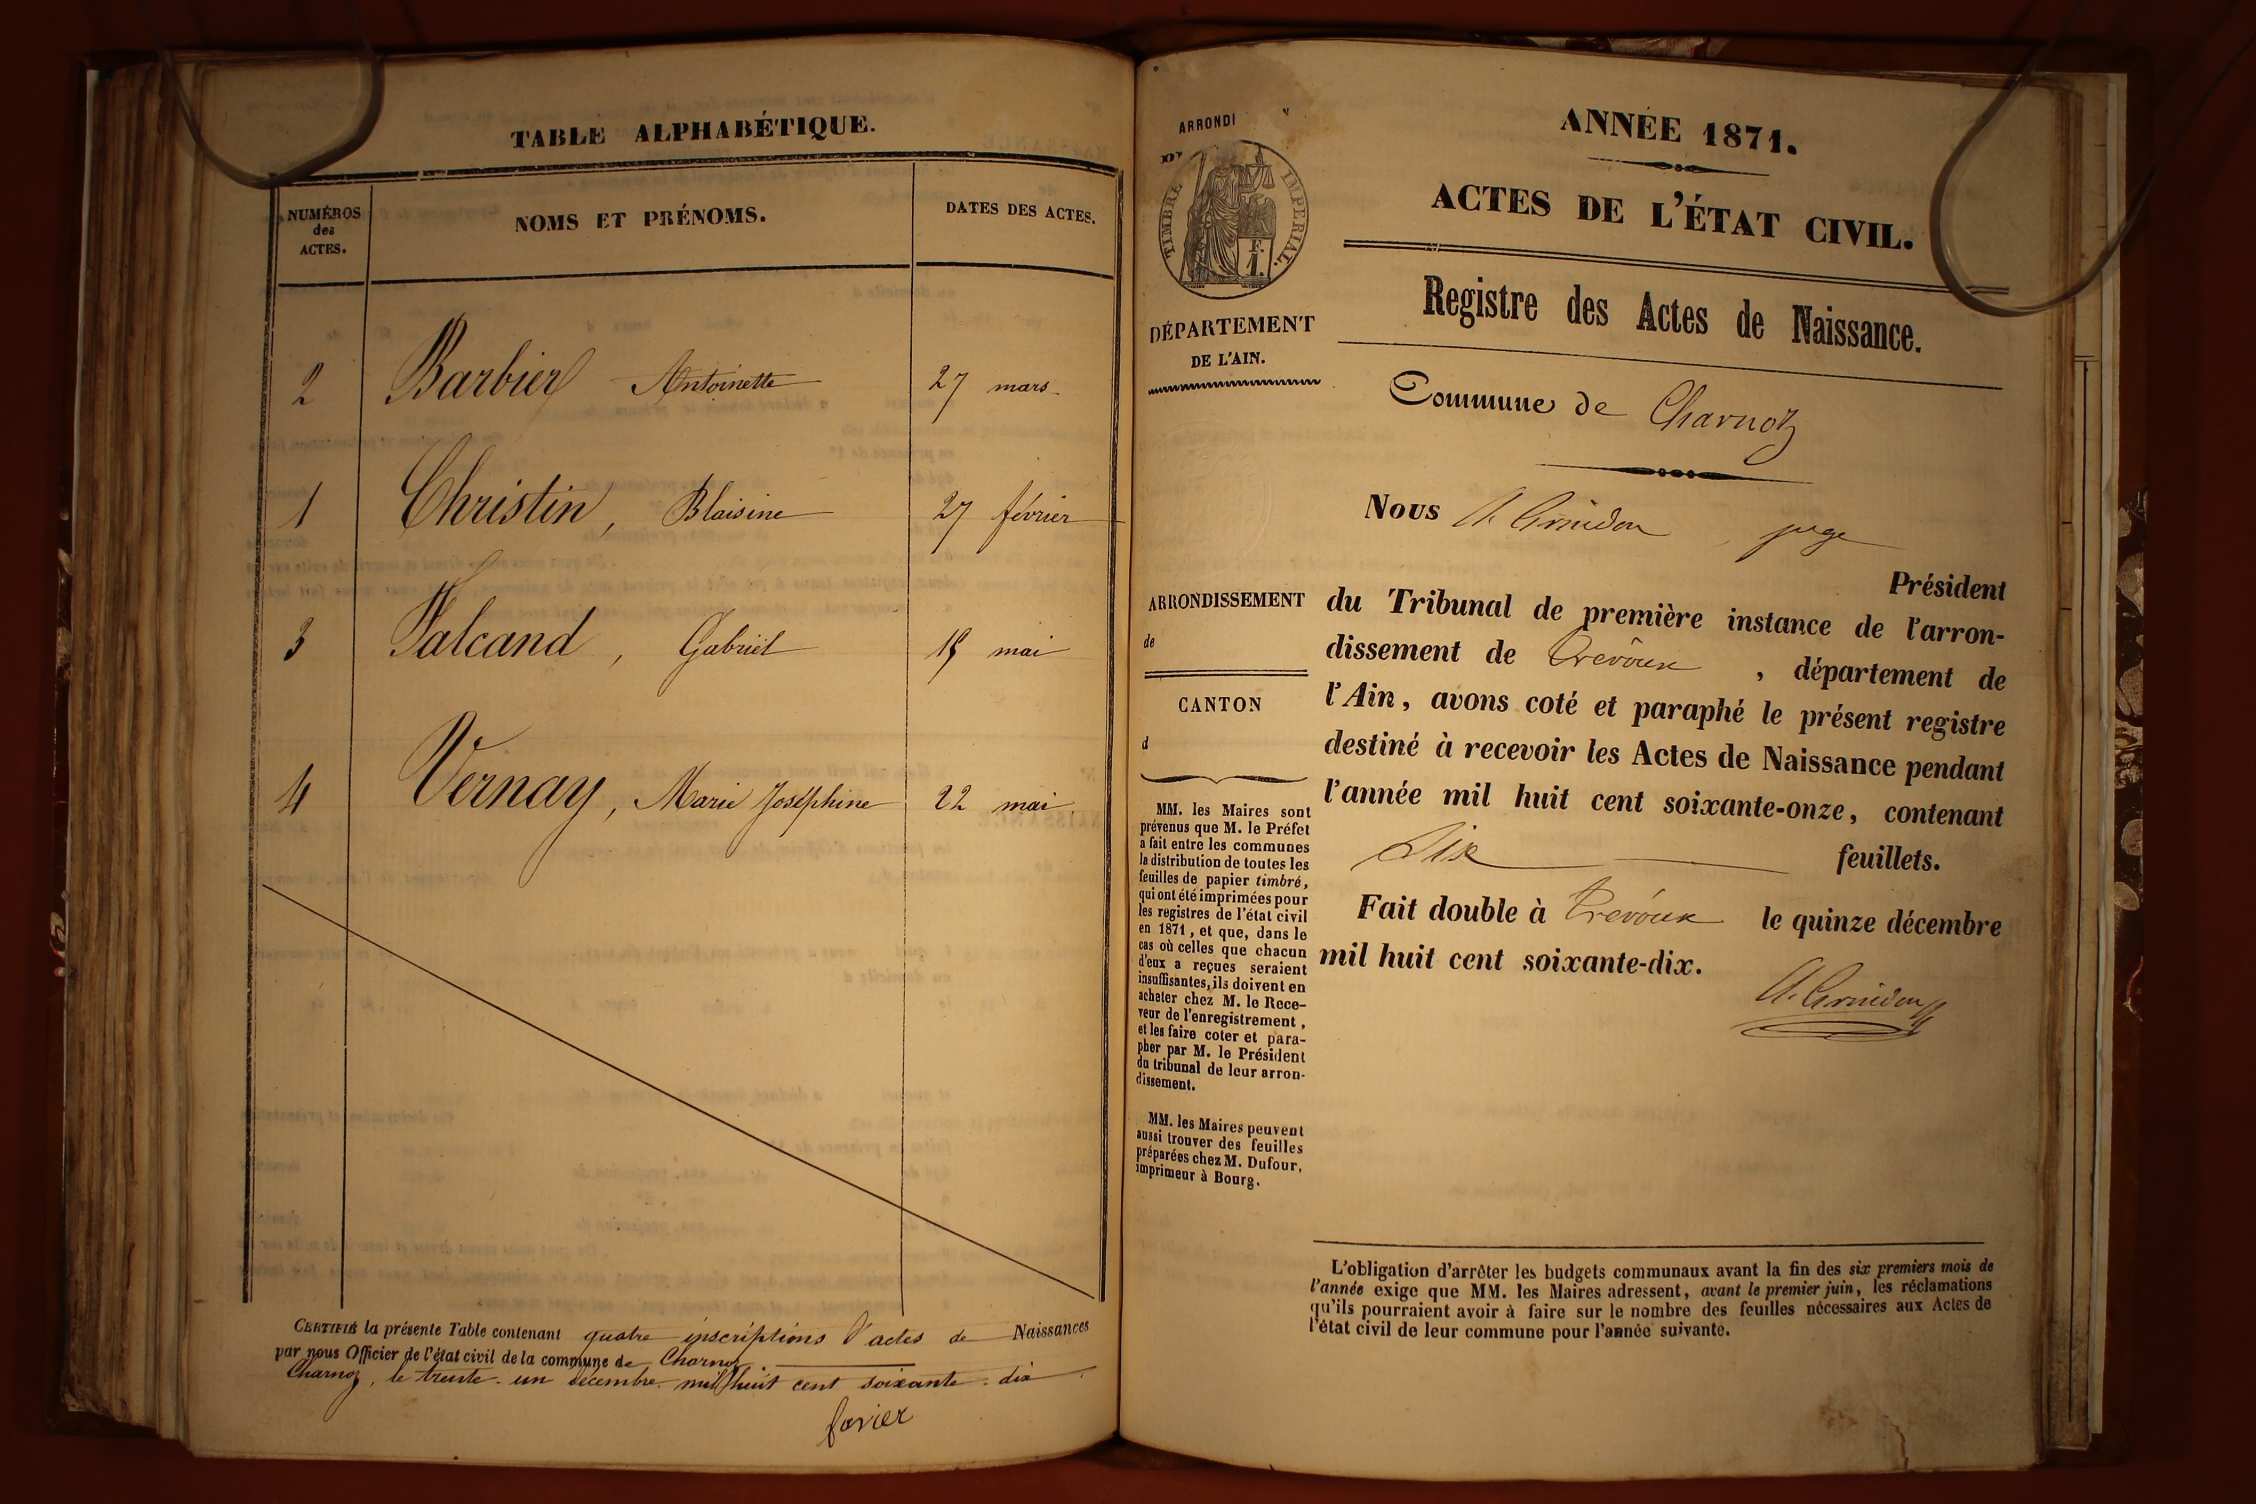 TABLE ALPHABÉTIQUE.
NUMÉROS
des
ACTES.
NOMS ET PRÉNOMS.
DATES DES ACTES.
2 Barbier Antoinette 27 mars
1 Christin, Blaisine 27 février
3 Falcand, Gabriel mai
4 Vernay, Marie Joséphine 22 mai
CERTIFIÉ la présente Table contenant quatre inscriptions d'actes de Naissances
par nous Officier de l'état civil de la commune de Charnoz
Charnoz, le trente-un décembre mil huit cent soixante-dix
favier
ARRONDI
TIMBRE IMPERIAL.
F.
1.
DÉPARTEMENT
DE L'AIN.
ARRONDISSEMENT
de
CANTON
d
MM. les Maires sont
prévenus que M. le Préfet
a fait entre les communes
la distribution de toutes les
feuilles de papier timbré,
qui ont été imprimées pour
les registres de l'état civil
en 1871, et que, dans le
cas où celles que chacun
d'eux a reçues seraient
insuffisantes, ils doivent en
acheter chez M. le Rece-
veur de l'enregistrement,
et les faire coter et para-
pher par M. le Président
du tribunal de leur arron-
dissement.
MM. les Maires peuvent
aussi trouver des feuilles
préparées chez M. Dufour,
imprimeur à Bourg.
ANNÉE 1871.
ACTES DE L'ÉTAT CIVIL.
Registre des Actes de Naissance.
Commune de Charnoz
Nous A. Grindon, juge
Président
du Tribunal de première instance de l'arron-
dissement de Trévoux, département de
l'Ain, avons coté et paraphé le présent registre
destiné à recevoir les Actes de Naissance pendant
l'année mil huit cent soixante-onze, contenant
Six feuillets.
Fait double à Trévoux le quinze décembre
mil huit cent soixante-dix.
A. Grindon
L'obligation d'arrêter les budgets communaux avant la fin des six premiers mois de
l'année exige que MM. les Maires adressent, avant le premier juin, les réclamations
qu'ils pourraient avoir à faire sur le nombre des feuilles nécessaires aux Actes de
l'état civil de leur commune pour l'année suivante.